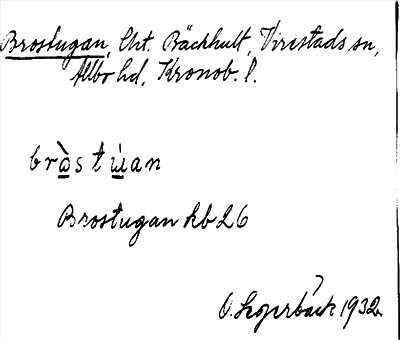 Brostugan, Cht. Bäckhult, Virestads sn,
Allbo hd, Kronob. l.
bròstu̇an
Brostugan kb 26
1932.